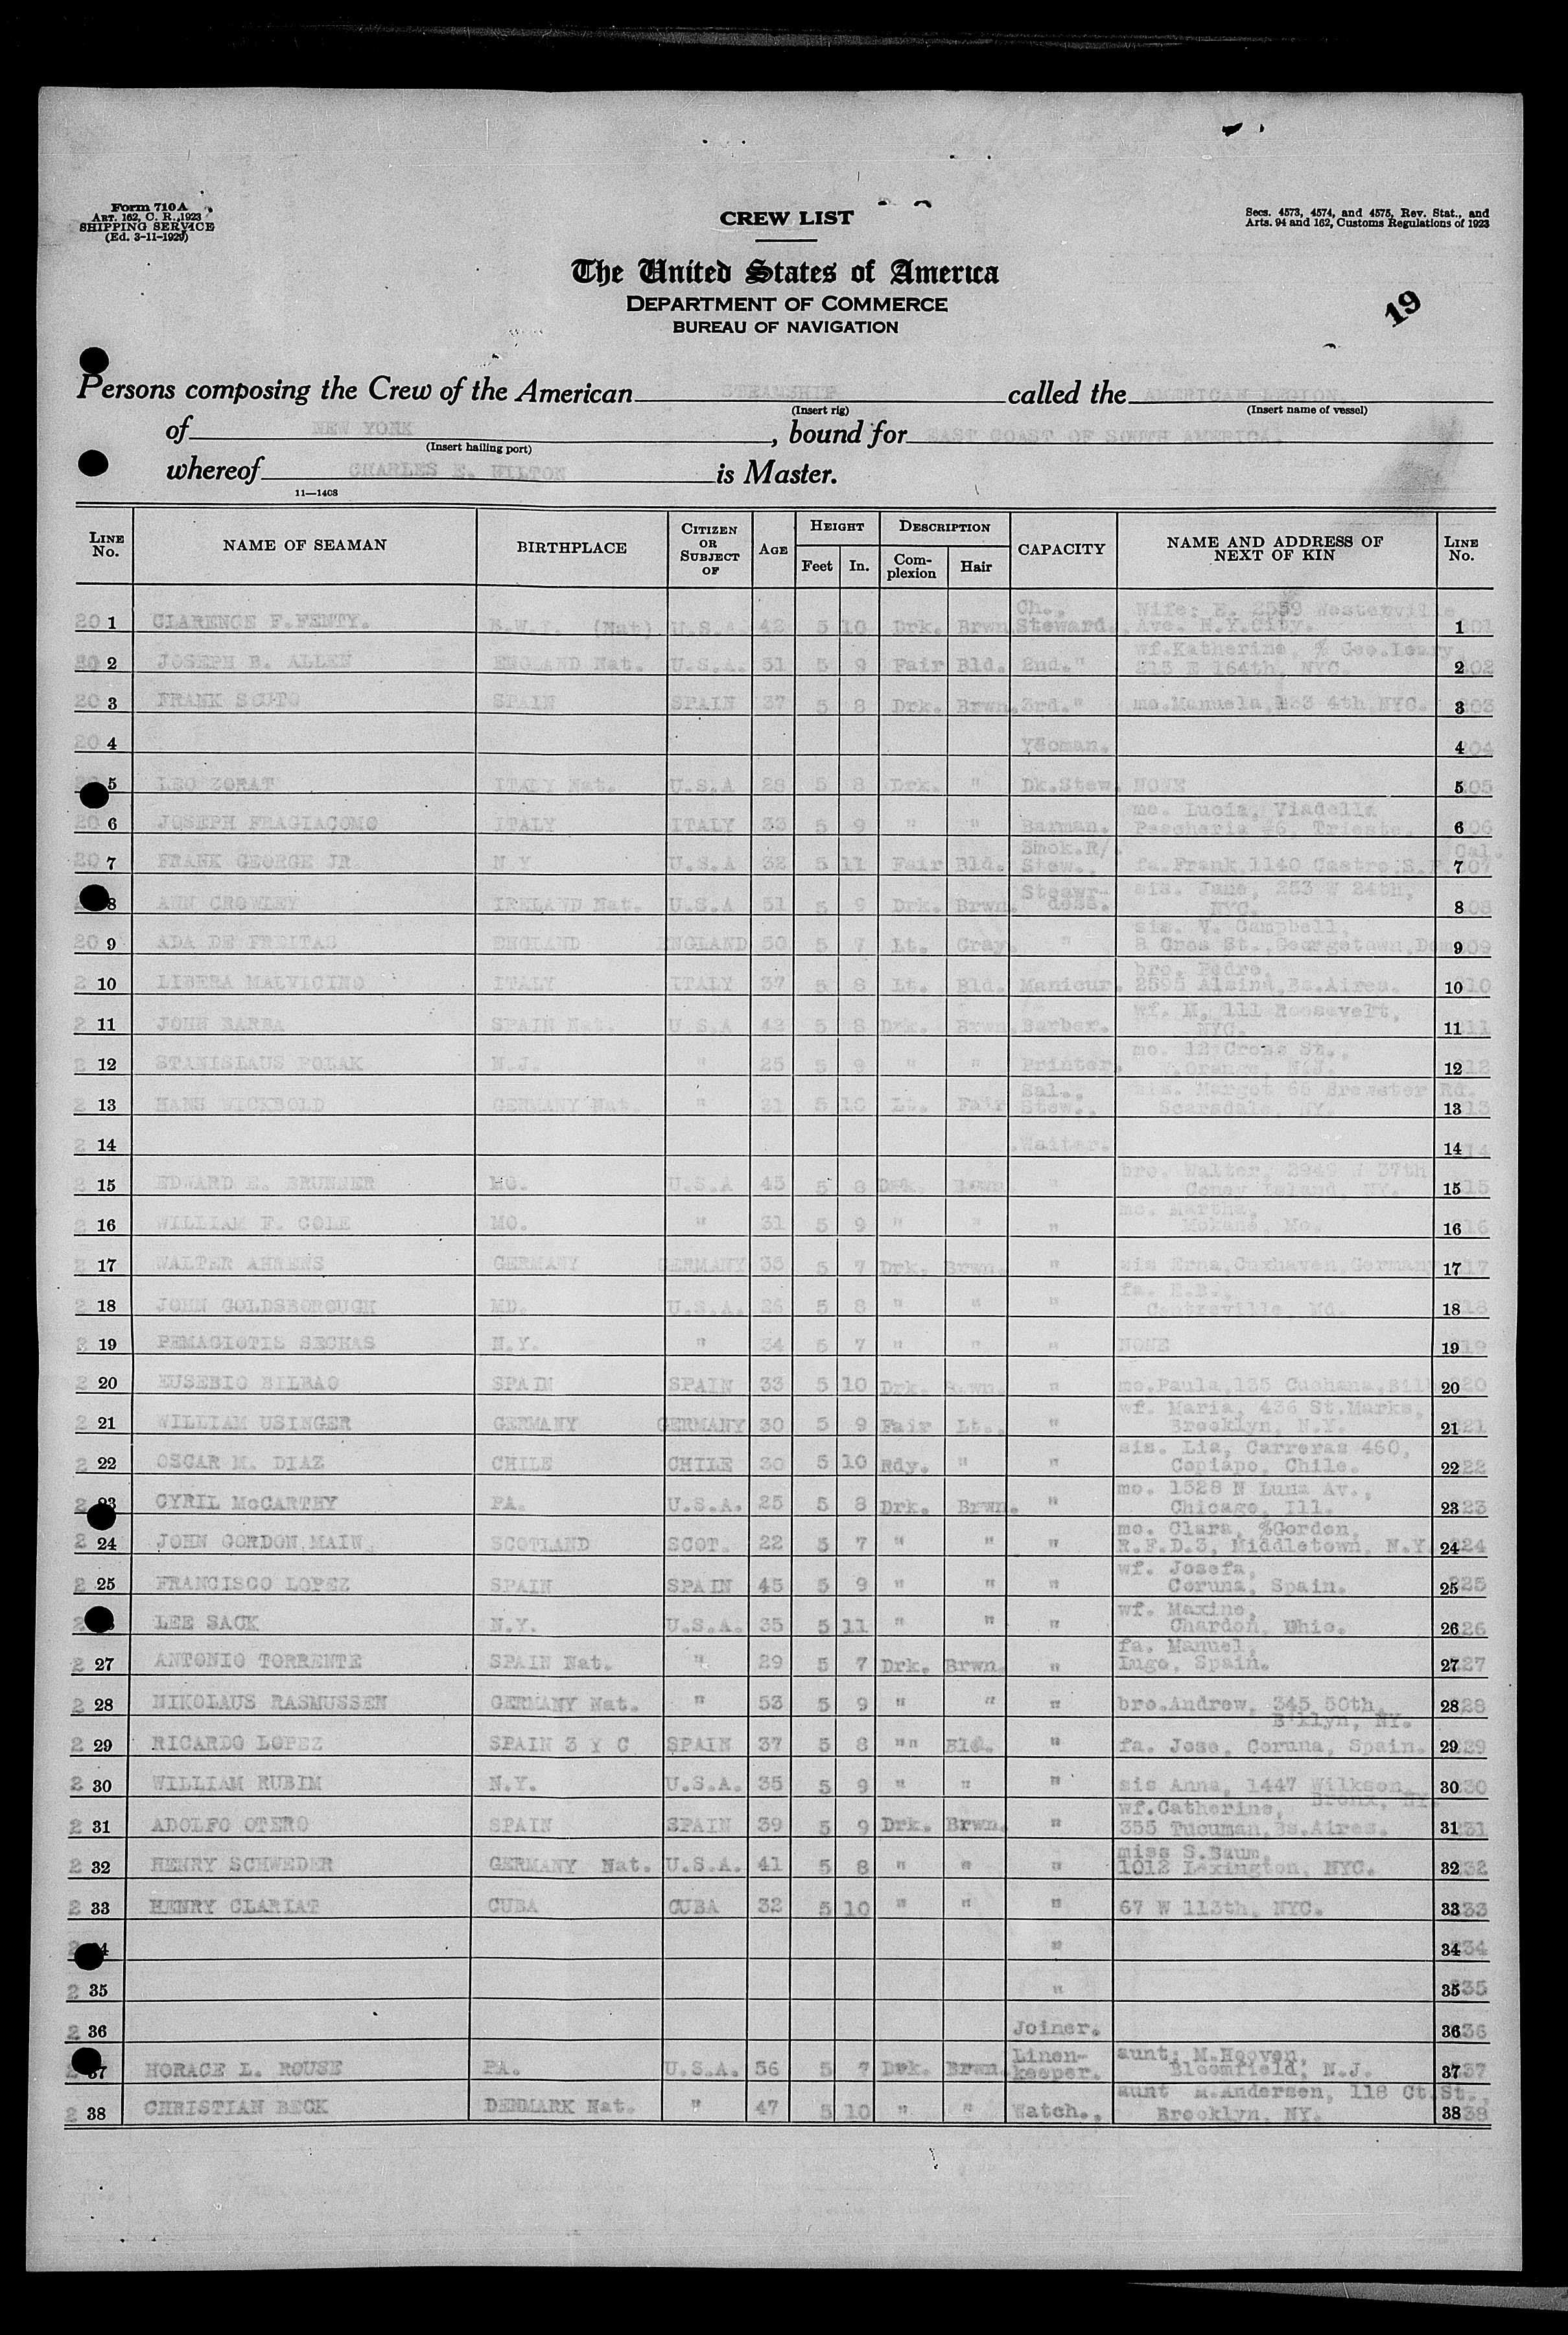 Form 710A
ART. 162, C. R., 1923
SHIPPING SERVICE
(Ed. 3-11-1929)
CREW LIST
Secs. 4573, 4574, and 4575, Rev. Stat., and
Arts. 94 and 162, Customs Regulations of 1923
The United States of America
DEPARTMENT OF COMMERCE
BUREAU OF NAVIGATION
19
Persons composing the Crew of the American STEAMSHIP called the AMERICAN LEGION,
(Insert rig) (Insert name of vessel)
of NEW YORK, bound for EAST COAST OF SOUTH AMERICA.
(Insert hailing port)
whereof CHARLES E. HILTON is Master.
11—1408
LINE No. NAME OF SEAMAN BIRTHPLACE CITIZEN OR SUBJECT OF AGE HEIGHT Feet In. DESCRIPTION Complexion Hair CAPACITY NAME AND ADDRESS OF NEXT OF KIN LINE No.
1 CLARENCE F.FENTY. B.W.I. (Nat) U.S.A. 42 5 10 Drk. Brwn Ch. Steward. Wife: E. 2559 Westerville Ave. N.Y.City. 1
2 JOSEPH B. ALLEN ENGLAND Nat. U.S.A. 51 5 9 Fair Bld. 2nd." wf.Katherine, % Geo.Leary, 215 E 164th, NYC. 2
3 FRANK SOUTO SPAIN SPAIN 37 5 8 Drk. Brwn. 3rd." mo.Manuela, 133 4th,NYC. 3
4 Yeoman. 4
5 LEO ZORAT ITALY Nat. U.S.A 28 5 8 Drk. " Dk.Stew. NONE 5
6 JOSEPH FRAGIACOMO ITALY ITALY 33 5 9 " " Barman. mo. Lucia, Viadella Pescheria #6, Trieste. 6
7 FRANK GEORGE JR N Y U.S.A 32 5 11 Fair Bld. Smok.R/. Stew. fa.Frank,1140 Castro,S.F. Cal. 7
8 ANN CROWLEY IRELAND Nat. U.S.A 51 5 9 Drk. Brwn. Steawr-dess. sis. Jane, 253 W 24th, NYC. 8
9 ADA DE FREITAS ENGLAND ENGLAND 50 5 7 Lt. Gray. " sis. V. Campbell, 8 Cros St.,Georgetown,Dem 9
10 LIBERA MALVICINO ITALY ITALY 37 5 8 Lt. Bld. Manicur. bro. Pedro, 2595 Alsina,Bs.Aires. 10
11 JOHN BARBA SPAIN Nat. U.S.A 42 5 8 Drk. Brwn. Barber. wf. M, 111 Roosevelt, NYC. 11
12 STANISLAUS POLAK N.J. " 25 5 9 " " Printer. mo. 12 Cross St., W.Orange, N.J. 12
13 HANS WICKBOLD GERMANY Nat. " 31 5 10 Lt. Fair Sal. Stew. sis. Margot 66 Brewster Rd. Scarsdale, NY. 13
14 Waiter. 14
15 EDWARD E. BRUNNER MO. U.S.A 43 5 8 Drk. Brwn " bro. Walter, 2949 W 37th Coney Island, NY. 15
16 WILLIAM F. COLE MO. " 31 5 9 " " " mo. Martha, Mokane, Mo. 16
17 WALTER AHRENS GERMANY GERMANY 35 5 7 Drk. Brwn. " sis Erna,Cuxhaven,Germany 17
18 JOHN GOLDSBOROUGH MD. U.S.A. 26 5 8 " " " fa. E.B., Centreville, Md. 18
19 PEMAGIOTIS SECHAS N.Y. " 34 5 7 " " " NONE 19
20 EUSEBIO BILBAO SPAIN SPAIN 33 5 10 Drk. Brwn. " mo.Paula,135 20
21 WILLIAM USINGER GERMANY GERMANY 30 5 9 Fair Lt. " wf. Maria, 436 St.Marks, Brooklyn, N.Y. 21
22 OSCAR M. DIAZ CHILE CHILE 30 5 10 Rdy. " " sis. Lia, Carreras 460, Copiapo, Chile. 22
23 CYRIL McCARTHY PA. U.S.A. 25 5 8 Drk. Brwn. " mo. 1528 N Luna Av., Chicago, Ill. 23
24 JOHN GORDON MAIN SCOTLAND SCOT. 22 5 7 " " " mo. Clara, %Gordon, R.F.D.3, Middletown, N.Y. 24
25 FRANCISCO LOPEZ SPAIN SPAIN 45 5 9 " " " wf. Josefa, Coruna, Spain. 25
LEE SACK N.Y. U.S.A. 35 5 11 " " " wf. Maxine, Chardon, Ohio. 26
27 ANTONIO TORRENTE SPAIN Nat. " 29 5 7 Drk. Brwn. " fa. Manuel, Lugo, Spain. 27
28 NIKOLAUS RASMUSSEN GERMANY Nat. " 53 5 9 " " " bro.Andrew, 345 50th, B'klyn, NY. 28
29 RICARDO LOPEZ SPAIN 3 Y C SPAIN 37 5 8 "" Bld. " fa. Jose, Coruna, Spain. 29
30 WILLIAM RUBIM N.Y. U.S.A. 35 5 9 " " " sis Anna, 1447 Wilkson, Bronx, NY. 30
31 ADOLFO OTERO SPAIN SPAIN 39 5 9 Drk. Brwn. " wf.Catherine, 355 Tucuman,Bs.Aires. 31
32 HENRY SCHWEDER GERMANY Nat. U.S.A. 41 5 8 " " " miss S.Baum, 1012 Lexington, NYC. 32
33 HENRY CLARIAT CUBA CUBA 32 5 10 " " " 67 W 113th, NYC. 33
" 34
35 " 35
36 Joiner. 36
37 HORACE L. ROUSE PA. U.S.A. 56 5 7 Drk. Brwn. Linen-keeper. aunt: M.Hooven, Bloomfield, N.J. 37
38 CHRISTIAN BECK DENMARK Nat. " 47 5 10 " " Watch., aunt M.Andersen, 118 Ct.St., Brooklyn, NY. 38